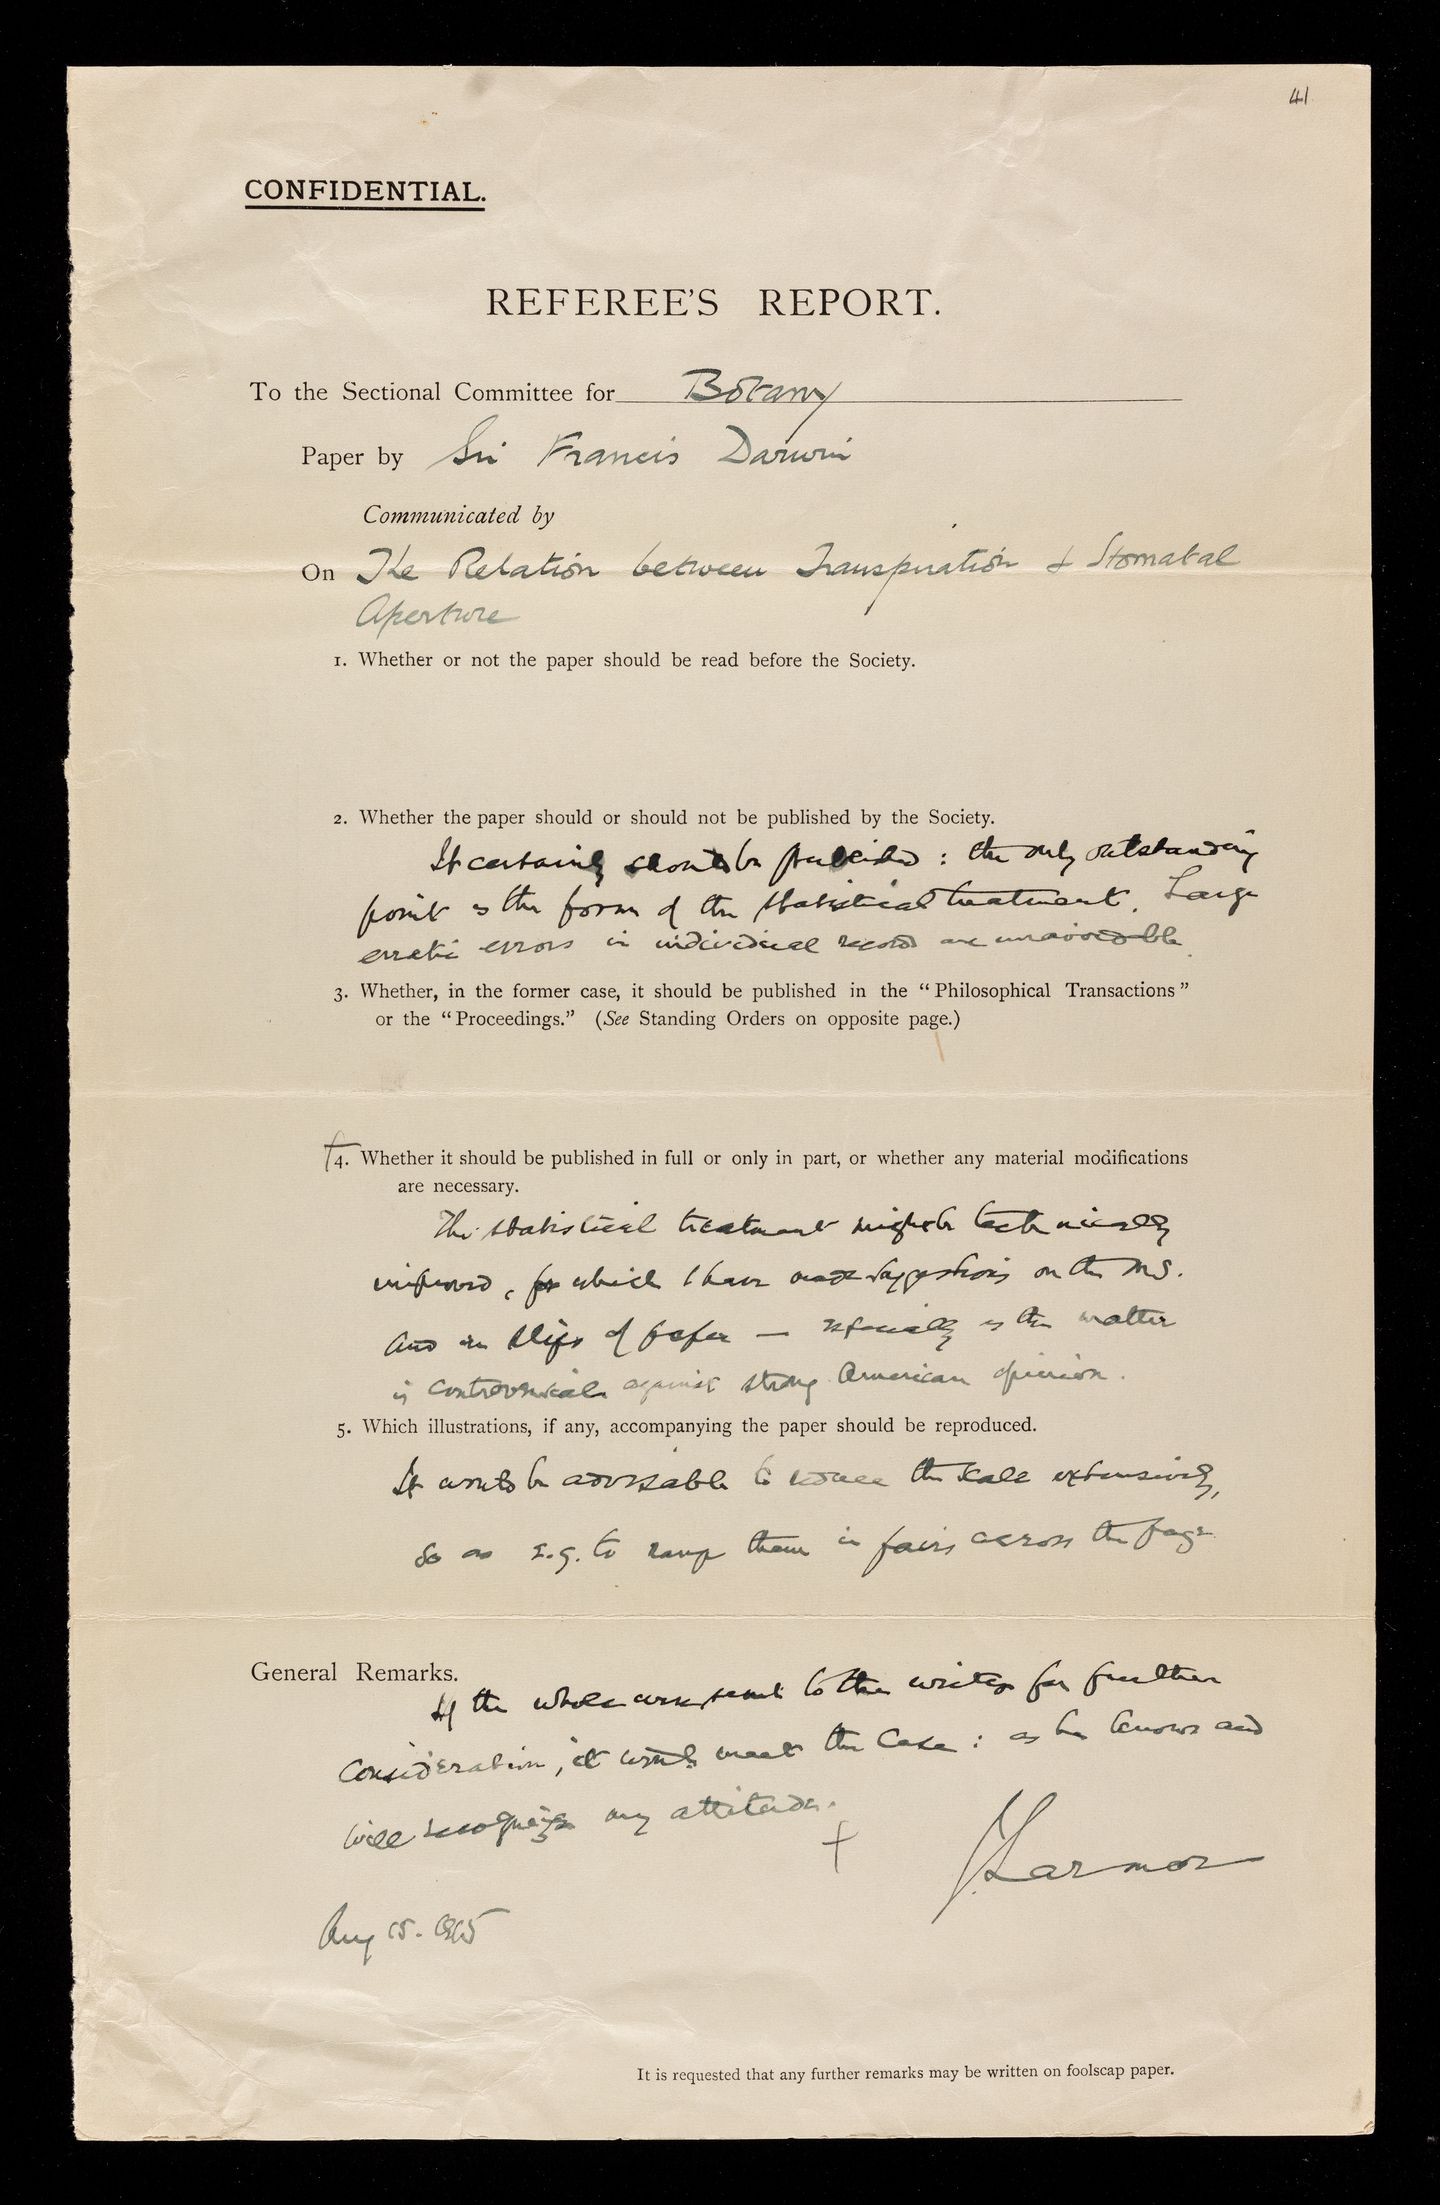 41
CONFIDENTIAL.
REFEREE'S REPORT.
To the Sectional Committee for Botany
Paper by Sir Francis Darwin
Communicated by
On The Relation between Transpiration & Stomatal
Aperture
1. Whether or not the paper should be read before the Society.
2. Whether the paper should or should not be published by the Society.
It certainly should be published : the only outstanding
point is the form of the statistical treatment. Large
erratic errors in individual records are unavoidable.
3. Whether, in the former case, it should be published in the “Philosophical Transactions”
or the “Proceedings.” (See Standing Orders on opposite page.)
4. Whether it should be published in full or only in part, or whether any material modifications
are necessary.
The statistical treatment might be technically
improved, for which I have made suggestions on the MS.
and on slips of paper — especially as the matter
is controversial against strong American opinion.
5. Which illustrations, if any, accompanying the paper should be reproduced.
It would be advisable to reduce the scale extensively,
so as e.g. to range them in pairs across the page
General Remarks.
If the whole were sent to the writer for further
consideration, it would meet the case : as he knows and
will recognize my attitude.
†
J. Larmor
Aug 15. 1915
It is requested that any further remarks may be written on foolscap paper.